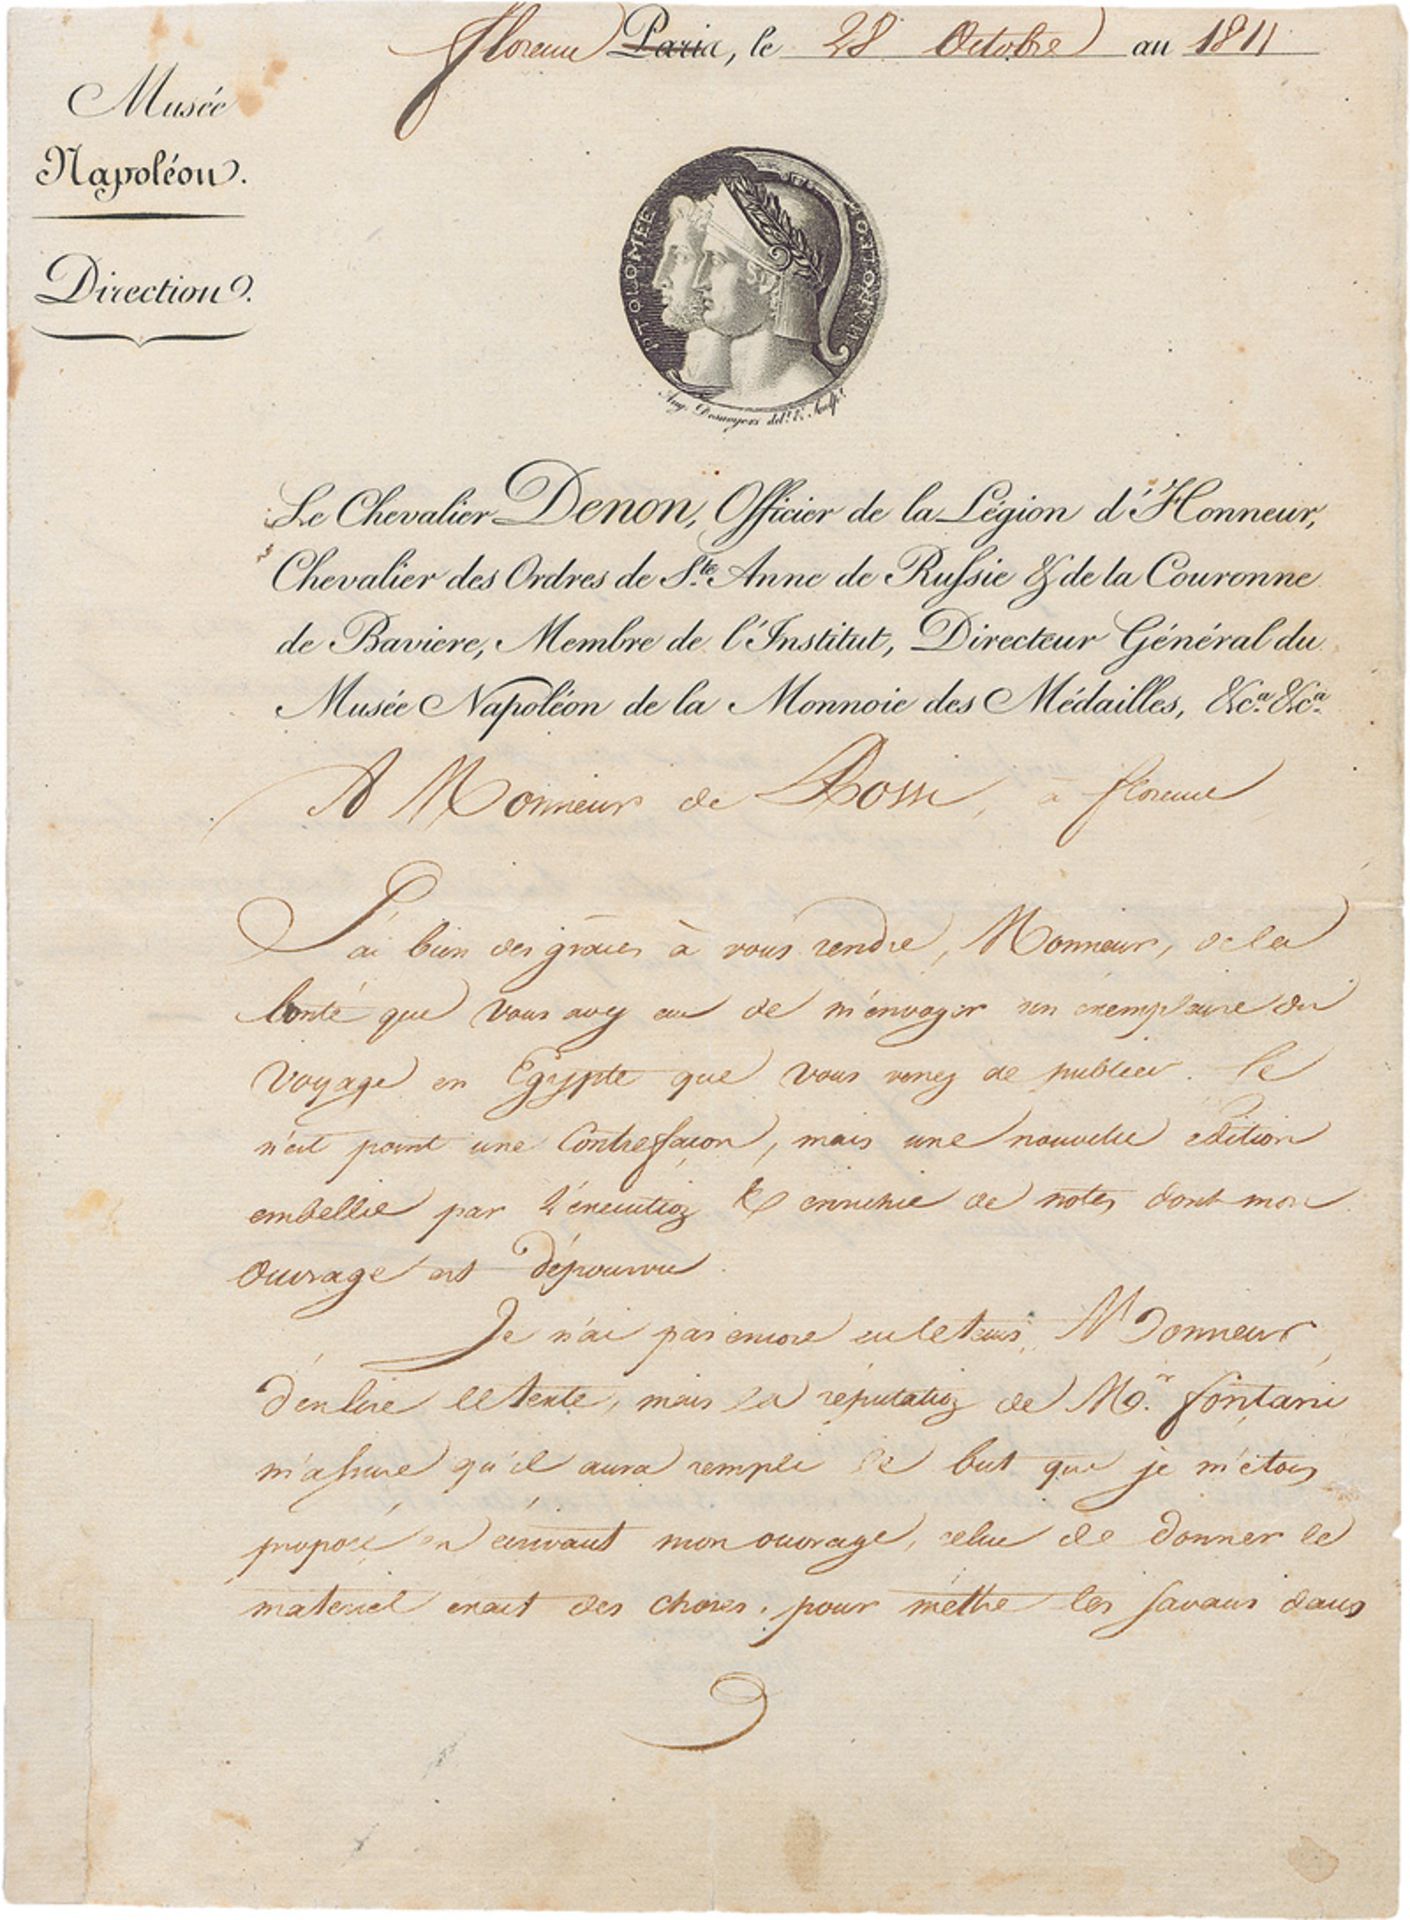 florence Paris, le 28 Octobre au 1811
Musée
Napoléon.
Direction.
PTOLOMÉE
Aug. Desnoyers del.t & Sculp.t
Le Chevalier Denon, Officier de la Légion d'Honneur,
Chevalier des Ordres de S.te Anne de Russie & de la Couronne
de Baviere, Membre de l'Institut, Directeur Général du
Musée Napoléon de la Monnoie des Médailles, &c.a &c.a
A Monsieur de Rossi, à florence
J'ai bien des grâces à vous rendre, Monsieur, de la
bonté que vous avez eue de m'envoyer un exemplaire du
voyage en Egypte que vous venez de publier. Ce
n'est point une Contrefaçon, mais une nouvelle édition
embellie par l'execution & enrichie de notes dont mon
Ouvrage est dépourvu.
Je n'ai pas encore eu le tems, Monsieur,
d'en lire le texte, mais la réputation de Mr. fontani
m'assure qu'il aura rempli le but que je m'étois
proposé en écrivant mon ouvrage, celui de donner le
materiel exact des choses, pour mettre les savans dans